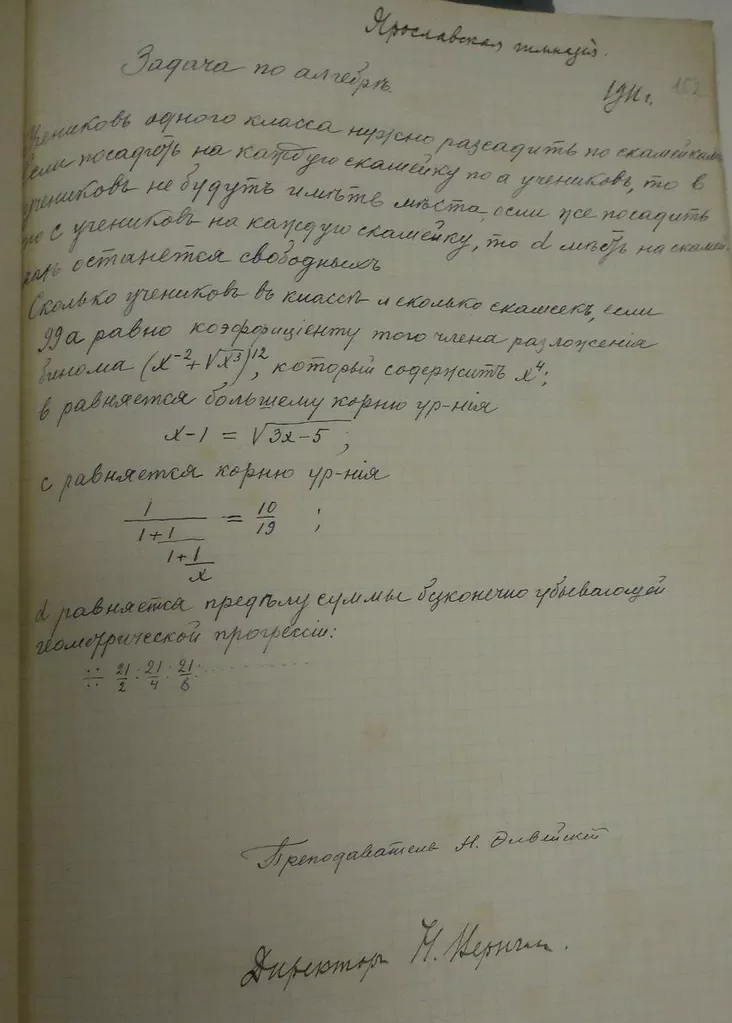 Ярославская гимназiя.
Задача по алгебрѣ.
1911 г.
152
Учениковъ одного класса нужно разсадить по скамейкамъ.
Если посадить на каждую скамейку по a учениковъ, то в
учениковъ не будутъ имѣть мѣста, если же посадить
по c учениковъ на каждую скамейку, то d мѣстъ на скамей-
кахъ останется свободныхъ
Сколько учениковъ въ классѣ и сколько скамеекъ, если
99a равно коэффицiенту того члена разложенiя
бинома (x⁻² + √x³)¹², который содержитъ x⁴;
в равняется большему корню ур-нiя
x-1 = √3x-5 ;
c равняется корню ур-нiя
1/(1+1/(1+1/x)) = 10/19 ;
d равняется предѣлу суммы безконечно убывающей
геометрической прогрессiи:
∺ 21/2 : 21/4 : 21/8 : ..........
Преподаватель Н.
Директоръ Н.